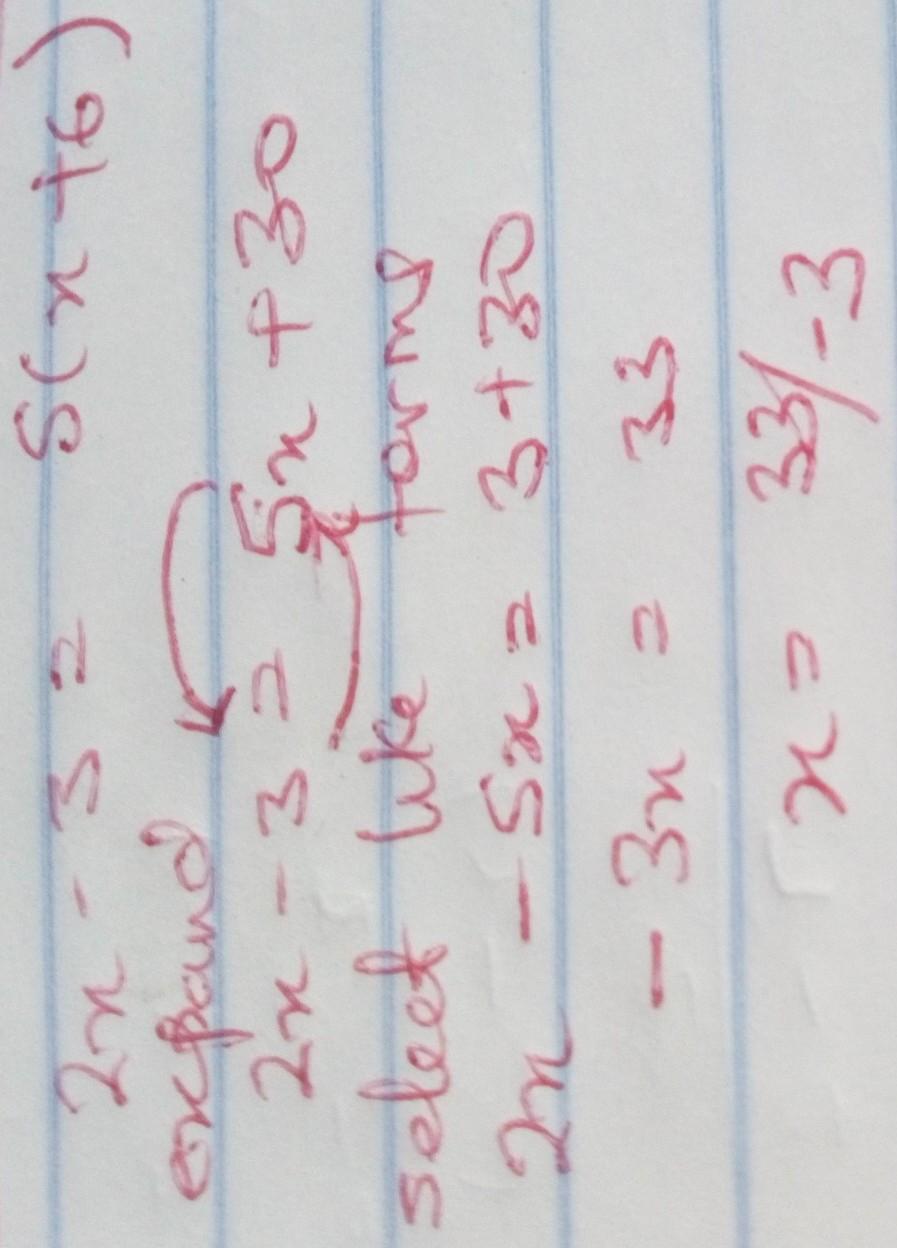 2x - 3 = 5(x + 6)
expand
2x - 3 = 5x + 30
select like terms
2x - 5x = 3 + 30
- 3x = 33
x = 33/-3